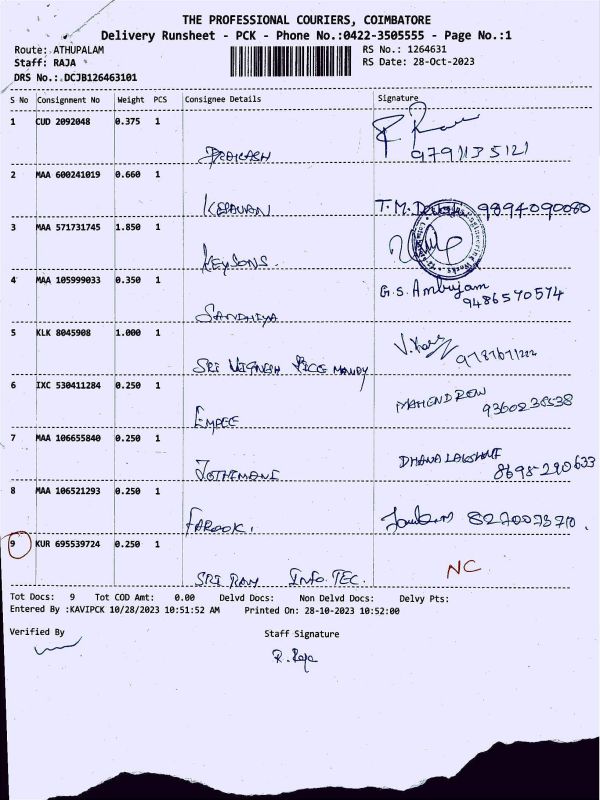 THE PROFESSIONAL COURIERS, COIMBATORE
Delivery Runsheet - PCK - Phone No.:0422-3505555 - Page No.:1
Route: ATHUPALAM RS No.: 1264631
Staff: RAJA RS Date: 28-Oct-2023
DRS No.: DCJB126463101
S No Consignment No Weight PCS Consignee Details Signature
1 CUD 2092048 0.375 1
PRAKASH 9791135121
2 MAA 600241019 0.660 1
KESAVAN T.M. 9894090080
3 MAA 571731745 1.850 1
KEYSONS.
4 MAA 105999033 0.350 1 G.S. Ambujam
SANDHIYA 9486570574
5 KLK 8045908 1.000 1
SRI VIGNESH RICE MANDY
6 IXC 530411284 0.250 1 MAHENDREN
EMPEE 9360238538
7 MAA 106655840 0.250 1 DHANALAKSHMI
JOTHIMANI 8698290633
8 MAA 106521293 0.250 1
FAROOK. 8270073710.
9 KUR 695539724 0.250 1 NC
SRI RAM INFO TEC.
Tot Docs: 9 Tot COD Amt: 0.00 Delvd Docs: Non Delvd Docs: Delvy Pts:
Entered By :KAVIPCK 10/28/2023 10:51:52 AM Printed On: 28-10-2023 10:52:00
Verified By Staff Signature
R. Raja